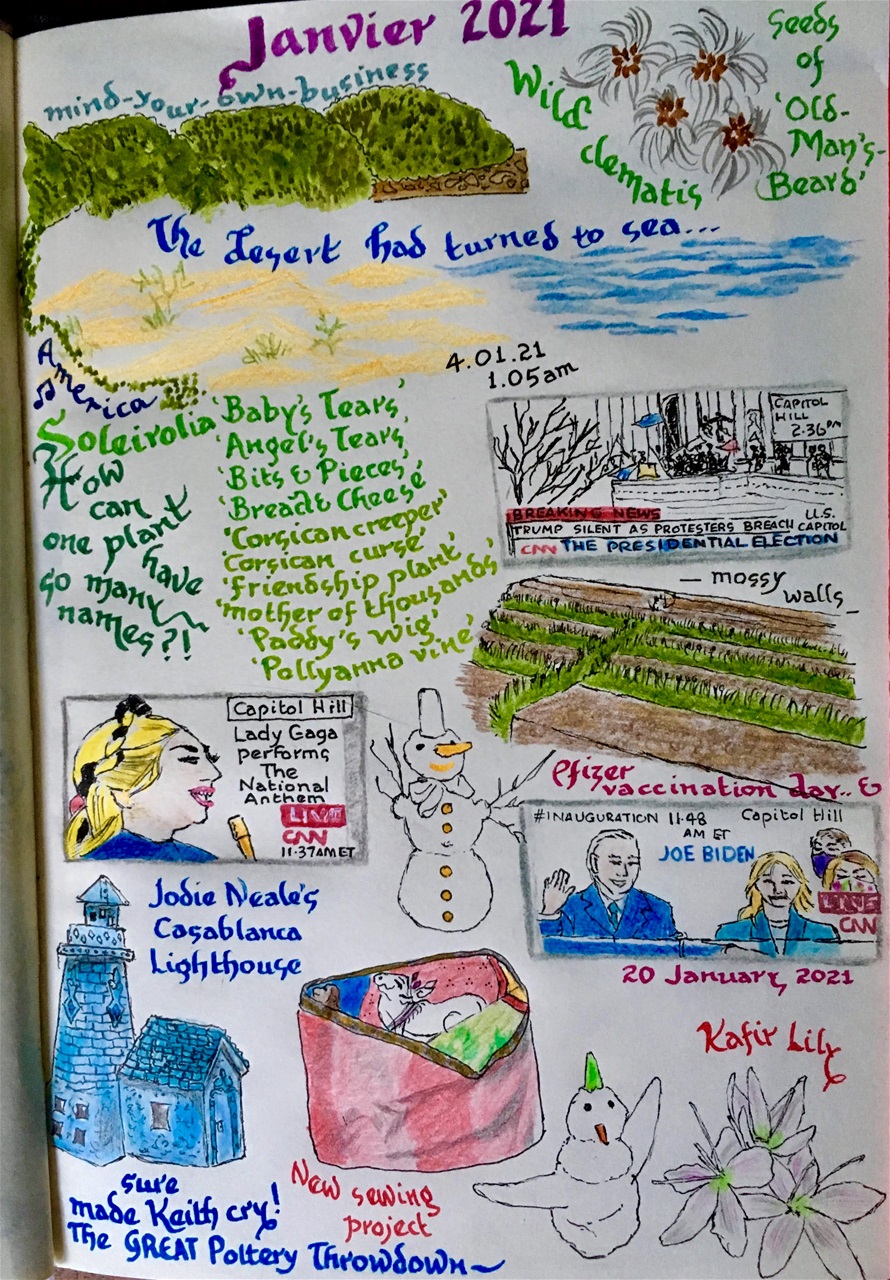 Janvier 2021
mind-your-own-business
Wild
clematis
Seeds
of
'Old-
Man's-
Beard'
The desert had turned to sea...
4.01.21
1.05am
America
Soleirolia
How
can
one plant
have
so many
names?!
'Baby's Tears'
'Angel's Tears
'Bits & Pieces'
'Bread & Cheese'
'Corsican creeper'
'Corsican curse'
'friendship plant'
'mother of thousands'
'Paddy's wig'
'Pollyanna vine'
CAPITOL
HILL
2.36PM
BREAKING NEWS
U.S.
TRUMP SILENT AS PROTESTERS BREACH CAPITOL
CNN THE PRESIDENTIAL ELECTION
- mossy
walls -
Capitol Hill
Lady Gaga
performs
The
National
Anthem
LIVE
CNN
11.37AM ET
Pfizer
vaccination day.. &
#INAUGURATION 11.48
AM ET
Capitol Hill
JOE BIDEN
LIVE
CNN
20 January, 2021
Jodie Neale's
Casablanca
Lighthouse
sure
made Keith cry!
The GREAT Pottery Throwdown~
New sewing
project
Kafir Lily